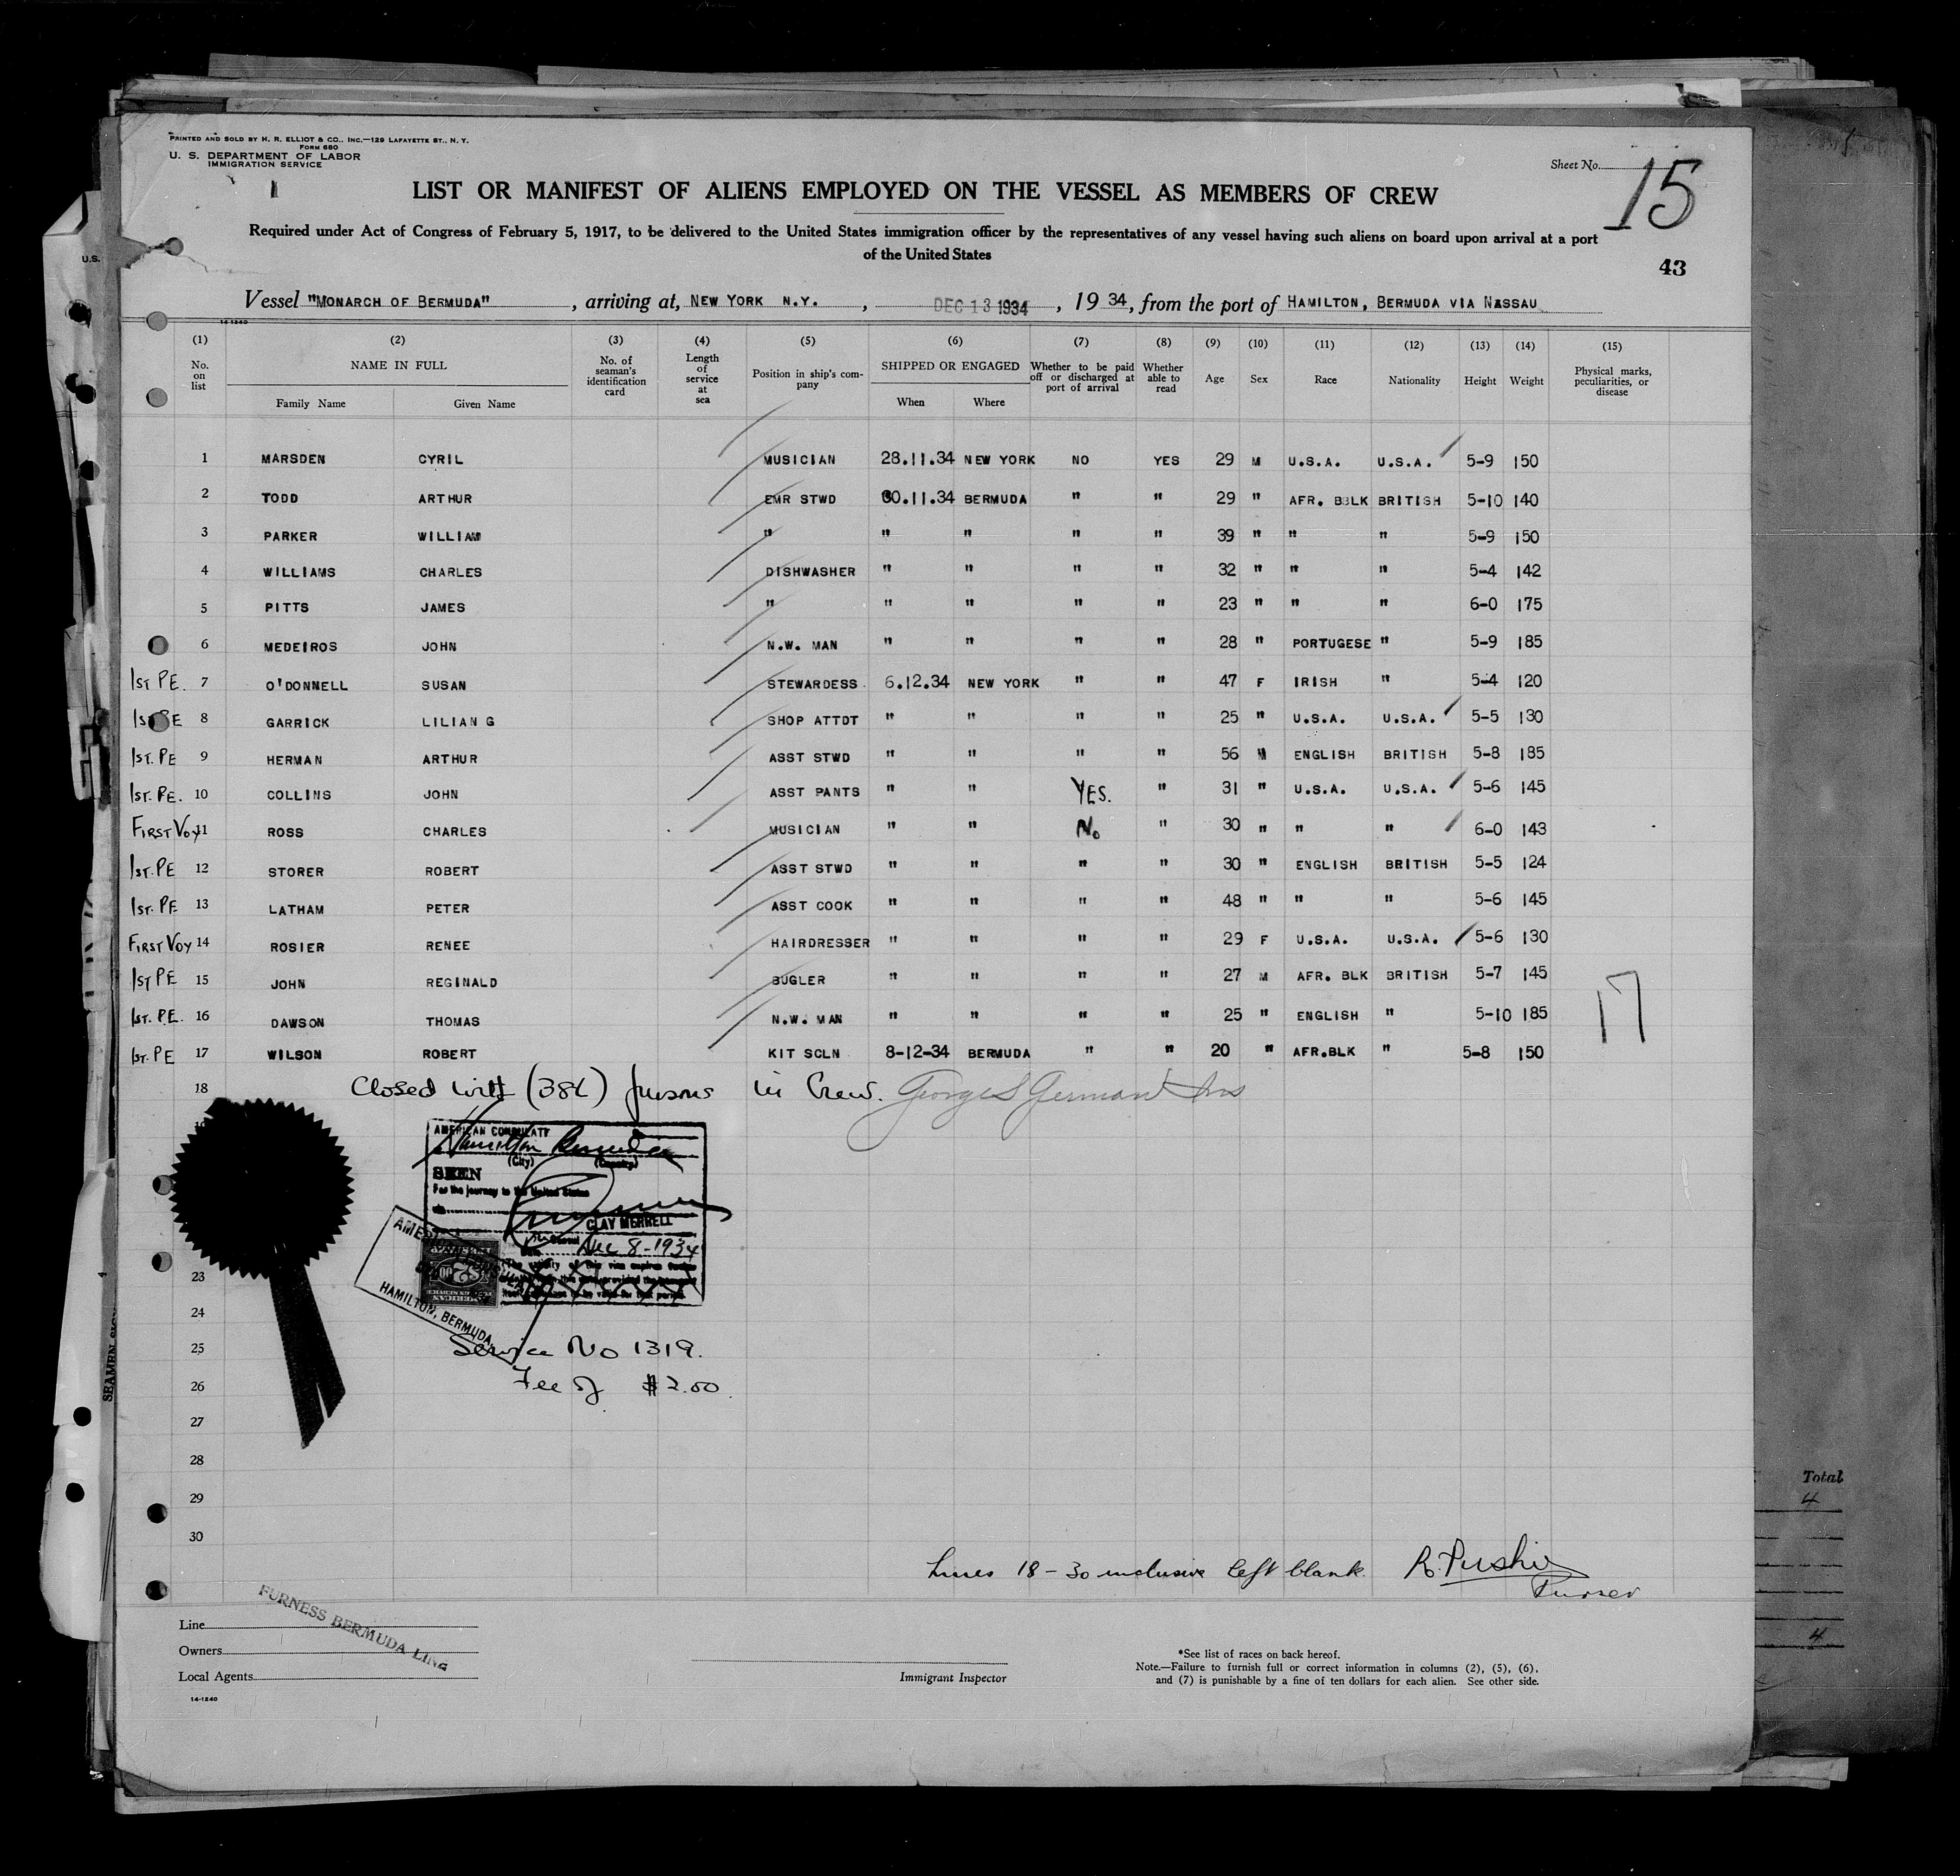 PRINTED AND SOLD BY H. R. ELLIOT & CO., INC.—129 LAFAYETTE ST., N. Y.
FORM 680
U. S. DEPARTMENT OF LABOR
IMMIGRATION SERVICE
Sheet No. 15
LIST OR MANIFEST OF ALIENS EMPLOYED ON THE VESSEL AS MEMBERS OF CREW
Required under Act of Congress of February 5, 1917, to be delivered to the United States immigration officer by the representatives of any vessel having such aliens on board upon arrival at a port
of the United States
43
Vessel "MONARCH OF BERMUDA", arriving at, NEW YORK N.Y., DEC 13 1934, 19 34, from the port of HAMILTON, BERMUDA VIA NASSAU
14-1240
(1) (2) (3) (4) (5) (6) (7) (8) (9) (10) (11) (12) (13) (14) (15)
No. on list NAME IN FULL No. of seaman's identification card Length of service at sea Position in ship's company SHIPPED OR ENGAGED Whether to be paid off or discharged at port of arrival Whether able to read Age Sex Race Nationality Height Weight Physical marks, peculiarities, or disease
Family Name Given Name When Where
1 MARSDEN CYRIL MUSICIAN 28.11.34 NEW YORK NO YES 29 M U.S.A. U.S.A. 5-9 150
2 TODD ARTHUR EMR STWD 30.11.34 BERMUDA " " 29 " AFR. BBLK BRITISH 5-10 140
3 PARKER WILLIAM " " " " " 39 " " " 5-9 150
4 WILLIAMS CHARLES DISHWASHER " " " " 32 " " " 5-4 142
5 PITTS JAMES " " " " " 23 " " " 6-0 175
6 MEDEIROS JOHN N.W. MAN " " " " 28 " PORTUGESE " 5-9 185
1ST PE. 7 O'DONNELL SUSAN STEWARDESS 6.12.34 NEW YORK " " 47 F IRISH " 5-4 120
1ST PE 8 GARRICK LILIAN G SHOP ATTDT " " " " 25 " U.S.A. U.S.A. 5-5 130
1ST. PE 9 HERMAN ARTHUR ASST STWD " " " " 56 M ENGLISH BRITISH 5-8 185
1ST. PE. 10 COLLINS JOHN ASST PANTS " " YES. " 31 " U.S.A. U.S.A. 5-6 145
FIRST VOY 11 ROSS CHARLES MUSICIAN " " No " 30 " " " 6-0 143
1ST. PE 12 STORER ROBERT ASST STWD " " " " 30 " ENGLISH BRITISH 5-5 124
1ST. PE 13 LATHAM PETER ASST COOK " " " " 48 " " " 5-6 145
FIRST VOY 14 ROSIER RENEE HAIRDRESSER " " " " 29 F U.S.A. U.S.A. 5-6 130
1ST PE 15 JOHN REGINALD BUGLER " " " " 27 M AFR. BLK BRITISH 5-7 145
1ST. P.E. 16 DAWSON THOMAS N.W. MAN " " " " 25 " ENGLISH " 5-10 185
17
1ST. PE 17 WILSON ROBERT KIT SCLN 8-12-34 BERMUDA " " 20 " AFR.BLK " 5-8 150
18 Closed with (386) persons in Crew. George S German
AMERICAN CONSULATE
Hamilton Bermuda
(City) (Country)
SEEN
For the journey to the United States
CLAY MERRELL
Dec 8-1934
HAMILTON, BERMUDA
23
24
25 Service No 1319.
26 Fee of $2.00.
27
28
29
30
Lines 18-30 inclusive left blank.
Purser
FURNESS BERMUDA LINE
Line
Owners
Local Agents
14-1240
Immigrant Inspector
*See list of races on back hereof.
Note.—Failure to furnish full or correct information in columns (2), (5), (6),
and (7) is punishable by a fine of ten dollars for each alien. See other side.
U.S.
Total
4
4